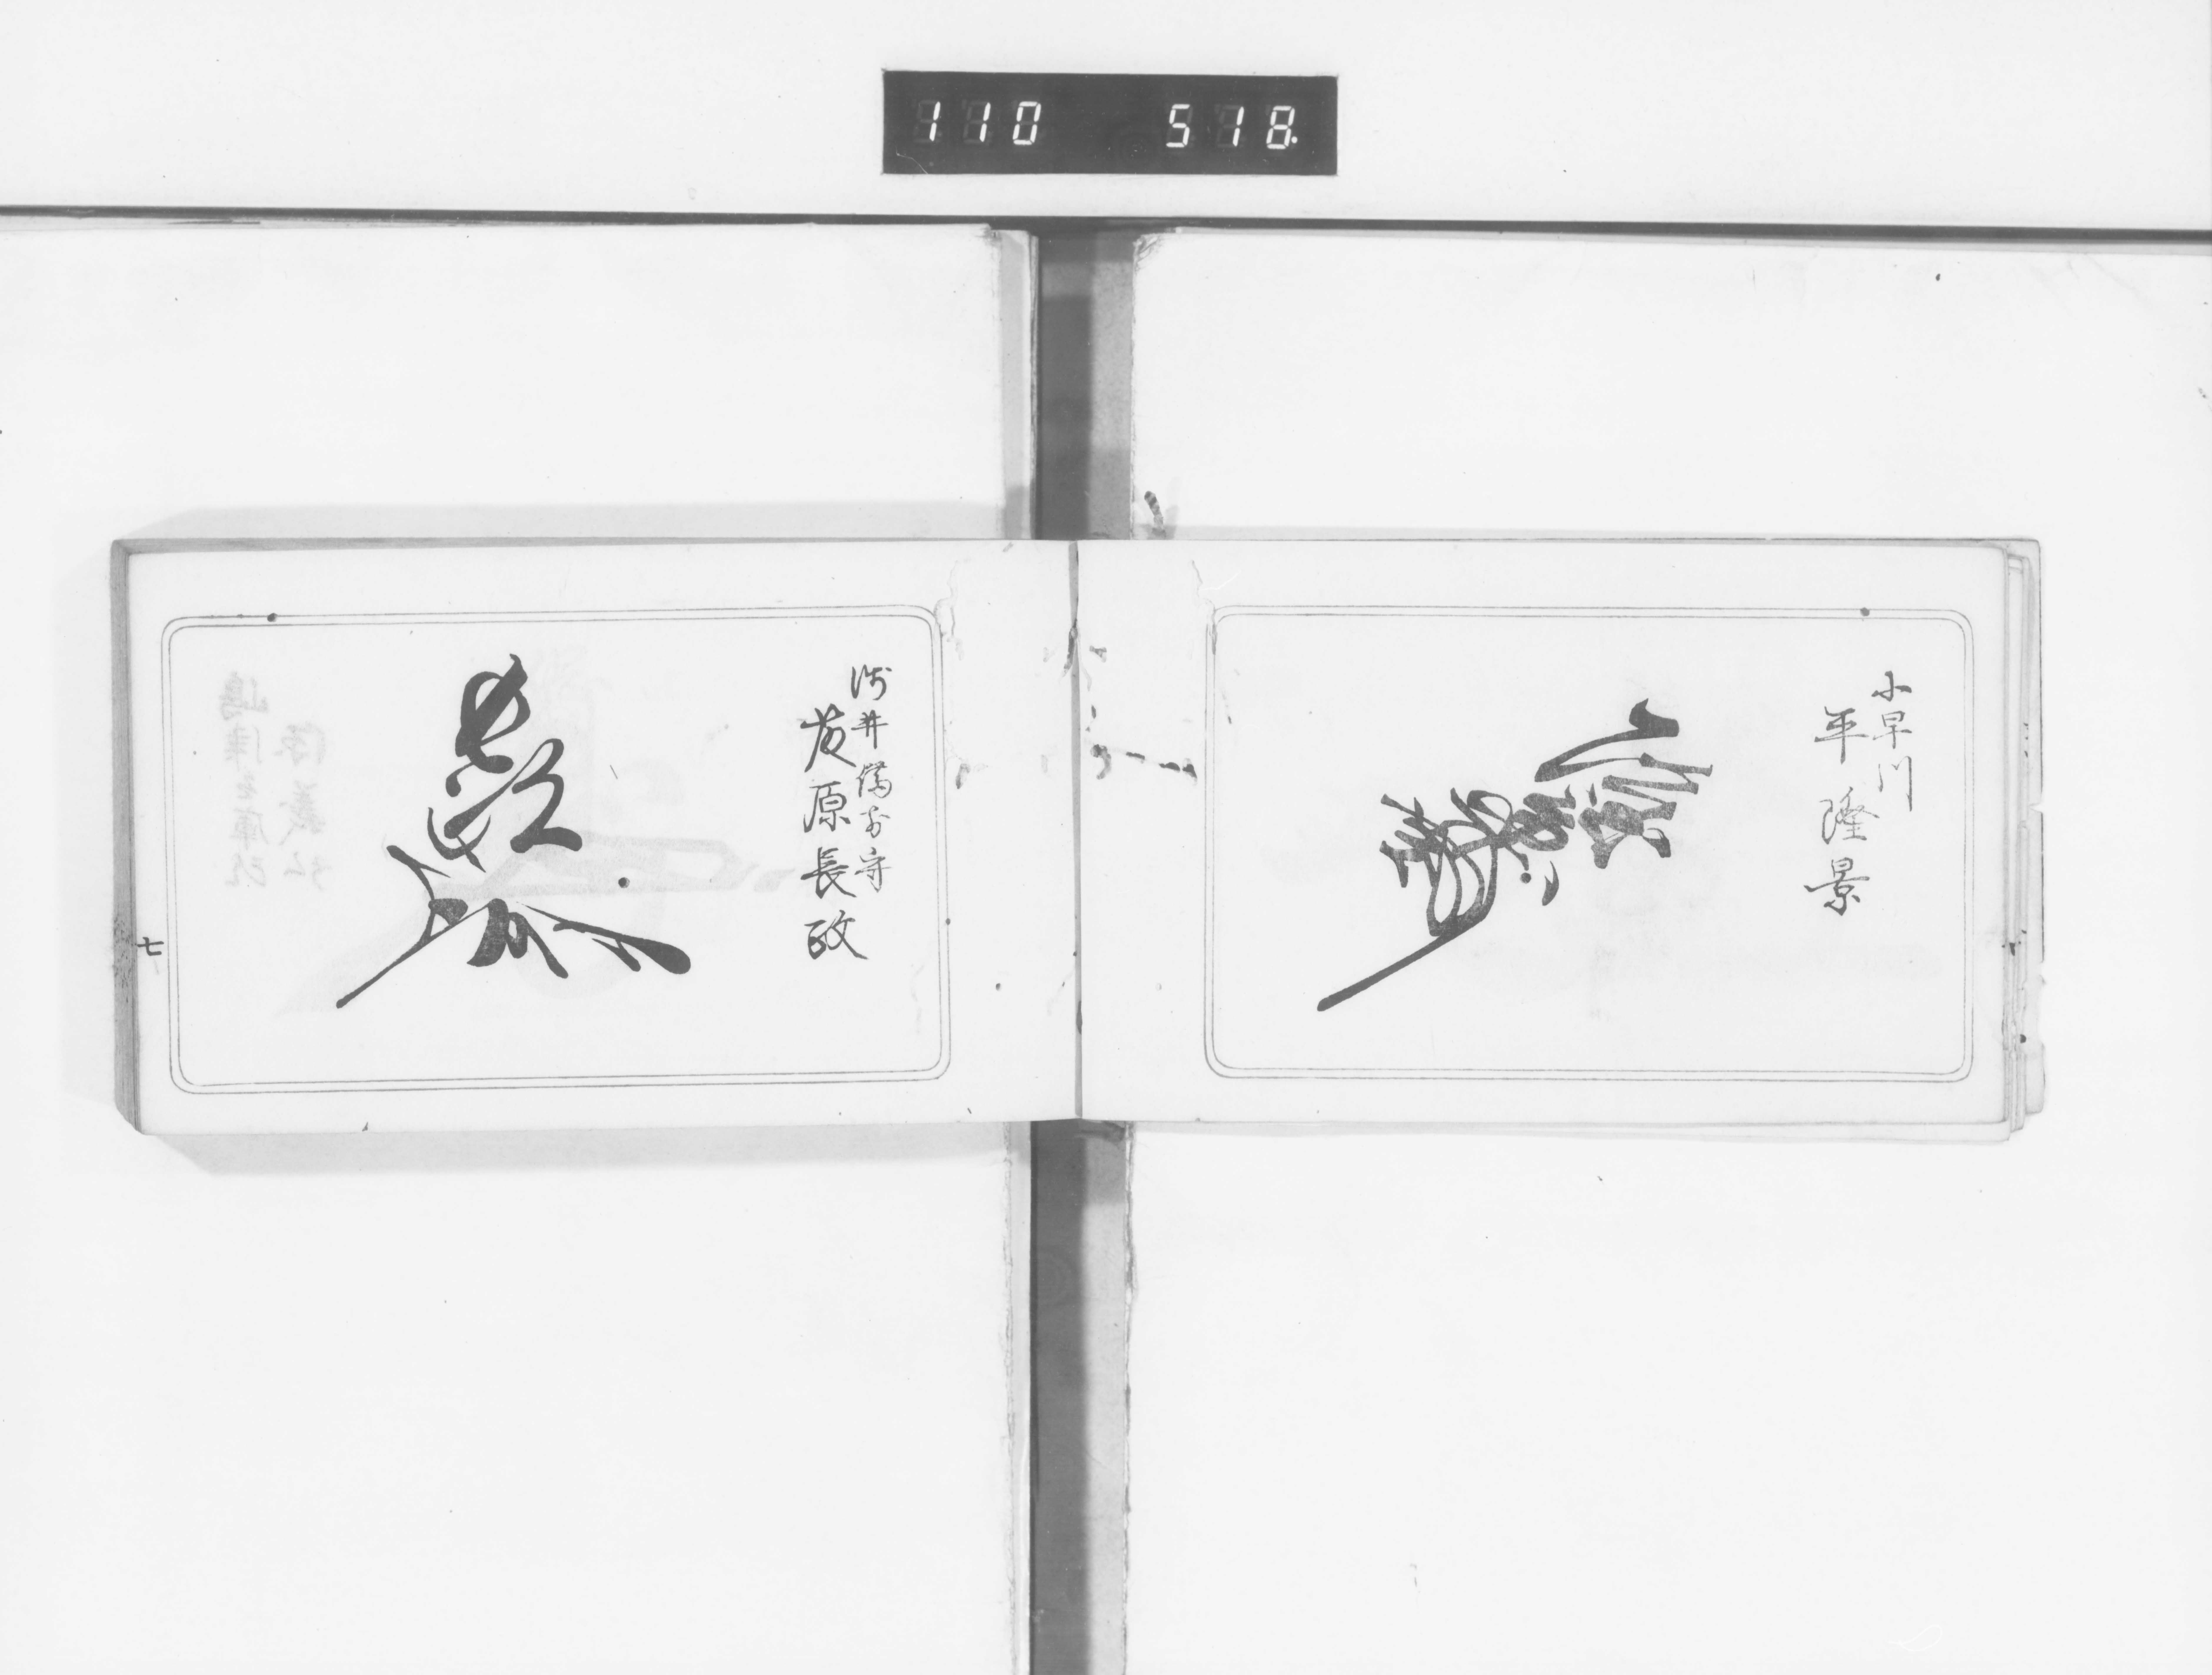 110 518
小早川
平隆景
浅井備前守
藤原長政
七